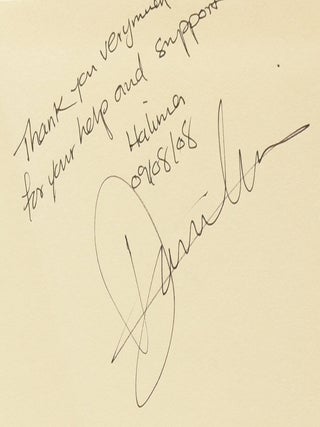 Thank you verymuch
for your help and support
Halima
09/08/08